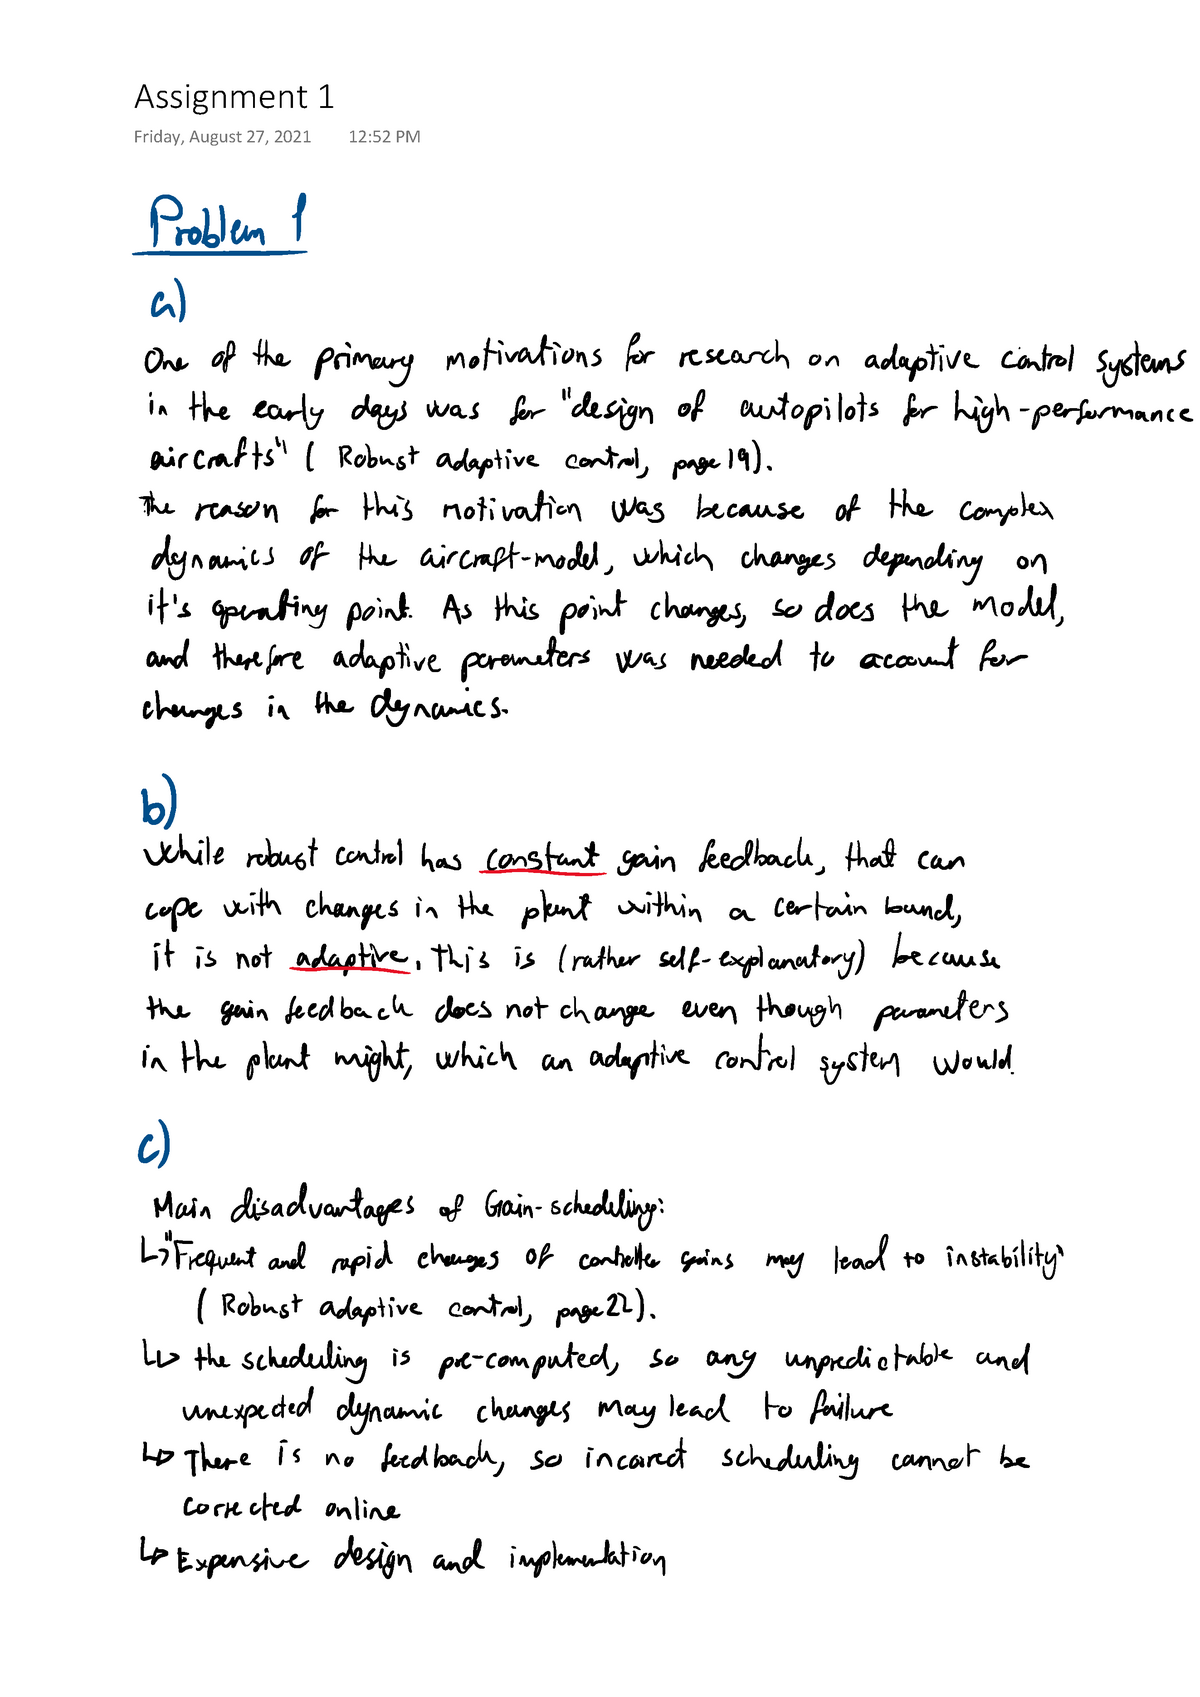 Assignment 1
Friday, August 27, 2021 12:52 PM
Problem 1
a)
One of the primary motivations for research on adaptive control systems
in the early days was for "design of autopilots for high-performance
aircrafts" ( Robust adaptive control, page 19).
The reason for this motivation was because of the complex
dynamics of the aircraft-model, which changes depending on
it's operating point. As this point changes, so does the model,
and therefore adaptive parameters was needed to account for
changes in the dynamics.
b)
While robust control has constant gain feedback, that can
cope with changes in the plant within a certain bound,
it is not adaptive, this is (rather self-explanatory) because
the gain feedback does not change even though parameters
in the plant might, which an adaptive control system would.
c)
Main disadvantages of Gain-schedeling:
↳"Frequent and rapid changes of controller gains may lead to instability"
( Robust adaptive control, page 22).
↳ the scheduling is pre-computed, so any unpredictable and
unexpected dynamic changes may lead to failure
↳ There is no feedback, so incorrect scheduling cannot be
corrected online
↳ Expensive design and implementation